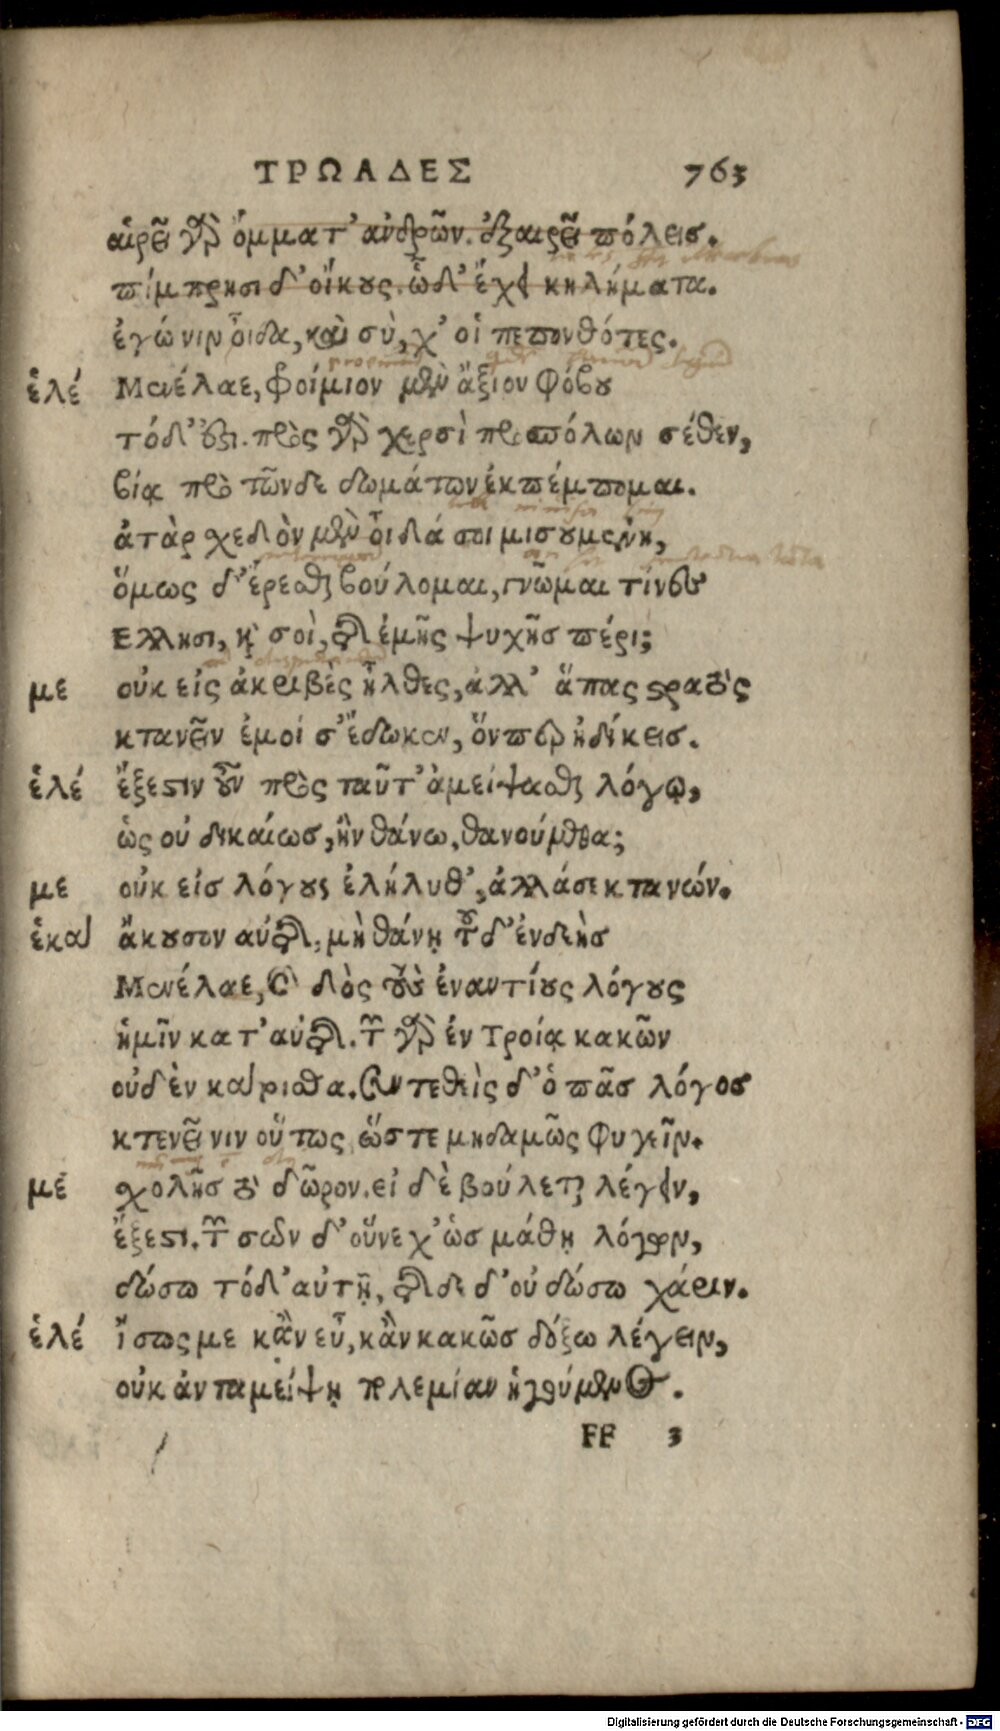 ΤΡΩΑΔΕΣ 763
αἱρεῖ γὰρ ὄμματ' ἀνδρῶν. ἐξαιρεῖ πόλεις.
πίμπρησι δ' οἴκους. ὧδ' ἔχει κηλήματα.
ἐγώ νιν οἶδα, καὶ σὺ, χ' οἱ πεπονθότες.
ἑλέ Μενέλαε, φροίμιον μὲν ἄξιον φόβου
τόδ' ἐστι. πρὸς γὰρ χερσὶ προσπόλων σέθεν,
βίᾳ πρὸ τῶνδε δωμάτων ἐκπέμπομαι.
ἀτὰρ σχεδὸν μὲν οἶδά σοι μισουμένη,
ὅμως δ' ἐρέσθαι βούλομαι, γνῶμαι τίνες
Ελλησι, καὶ σοὶ, τῆς ἐμῆς ψυχῆς πέρι;
με οὐκ εἰς ἀκριβὲς ἦλθες, ἀλλ' ἅπας στρατὸς
κτανεῖν ἐμοί σ' ἔδωκεν, ὅνπερ ἠδίκεις.
ἑλέ ἔξεστιν οὖν πρὸς ταῦτ' ἀμείψασθαι λόγῳ,
ὡς οὐ δικαίως, ἢν θάνω, θανούμεθα;
με οὐκ εἰς λόγους ἐλήλυθ', ἀλλά σε κτανών.
ἑκαὶ ἄκουσον αὐτῆς, μὴ θάνῃ τοῦδ' ἐνδεὴς
Μενέλαε, καὶ δὸς τοὺς ἐναντίους λόγους
ἡμῖν κατ' αὐτῆς. τῶν γὰρ ἐν Τροίᾳ κακῶν
οὐδὲν κατοισθα. συντεθεὶς δ' ὁ πᾶς λόγος
κτενεῖ νιν οὕτως, ὥστε μηδαμῶς φυγεῖν.
με σχολῆς τὸ δῶρον. εἰ δὲ βούλεται λέγειν,
ἔξεστι. τῶν σῶν δ' οὕνεχ' ὡς μάθῃ λόγων,
δώσω τόδ' αὐτῇ, τῆσδε δ' οὐ δώσω χάριν.
ἑλέ ἴσως με κἂν εὖ, κἂν κακῶς δόξω λέγειν,
οὐκ ἀνταμείψῃ πολεμίαν ἡγούμενος.
FF 3
Digitalisierung gefördert durch die Deutsche Forschungsgemeinschaft - DFG